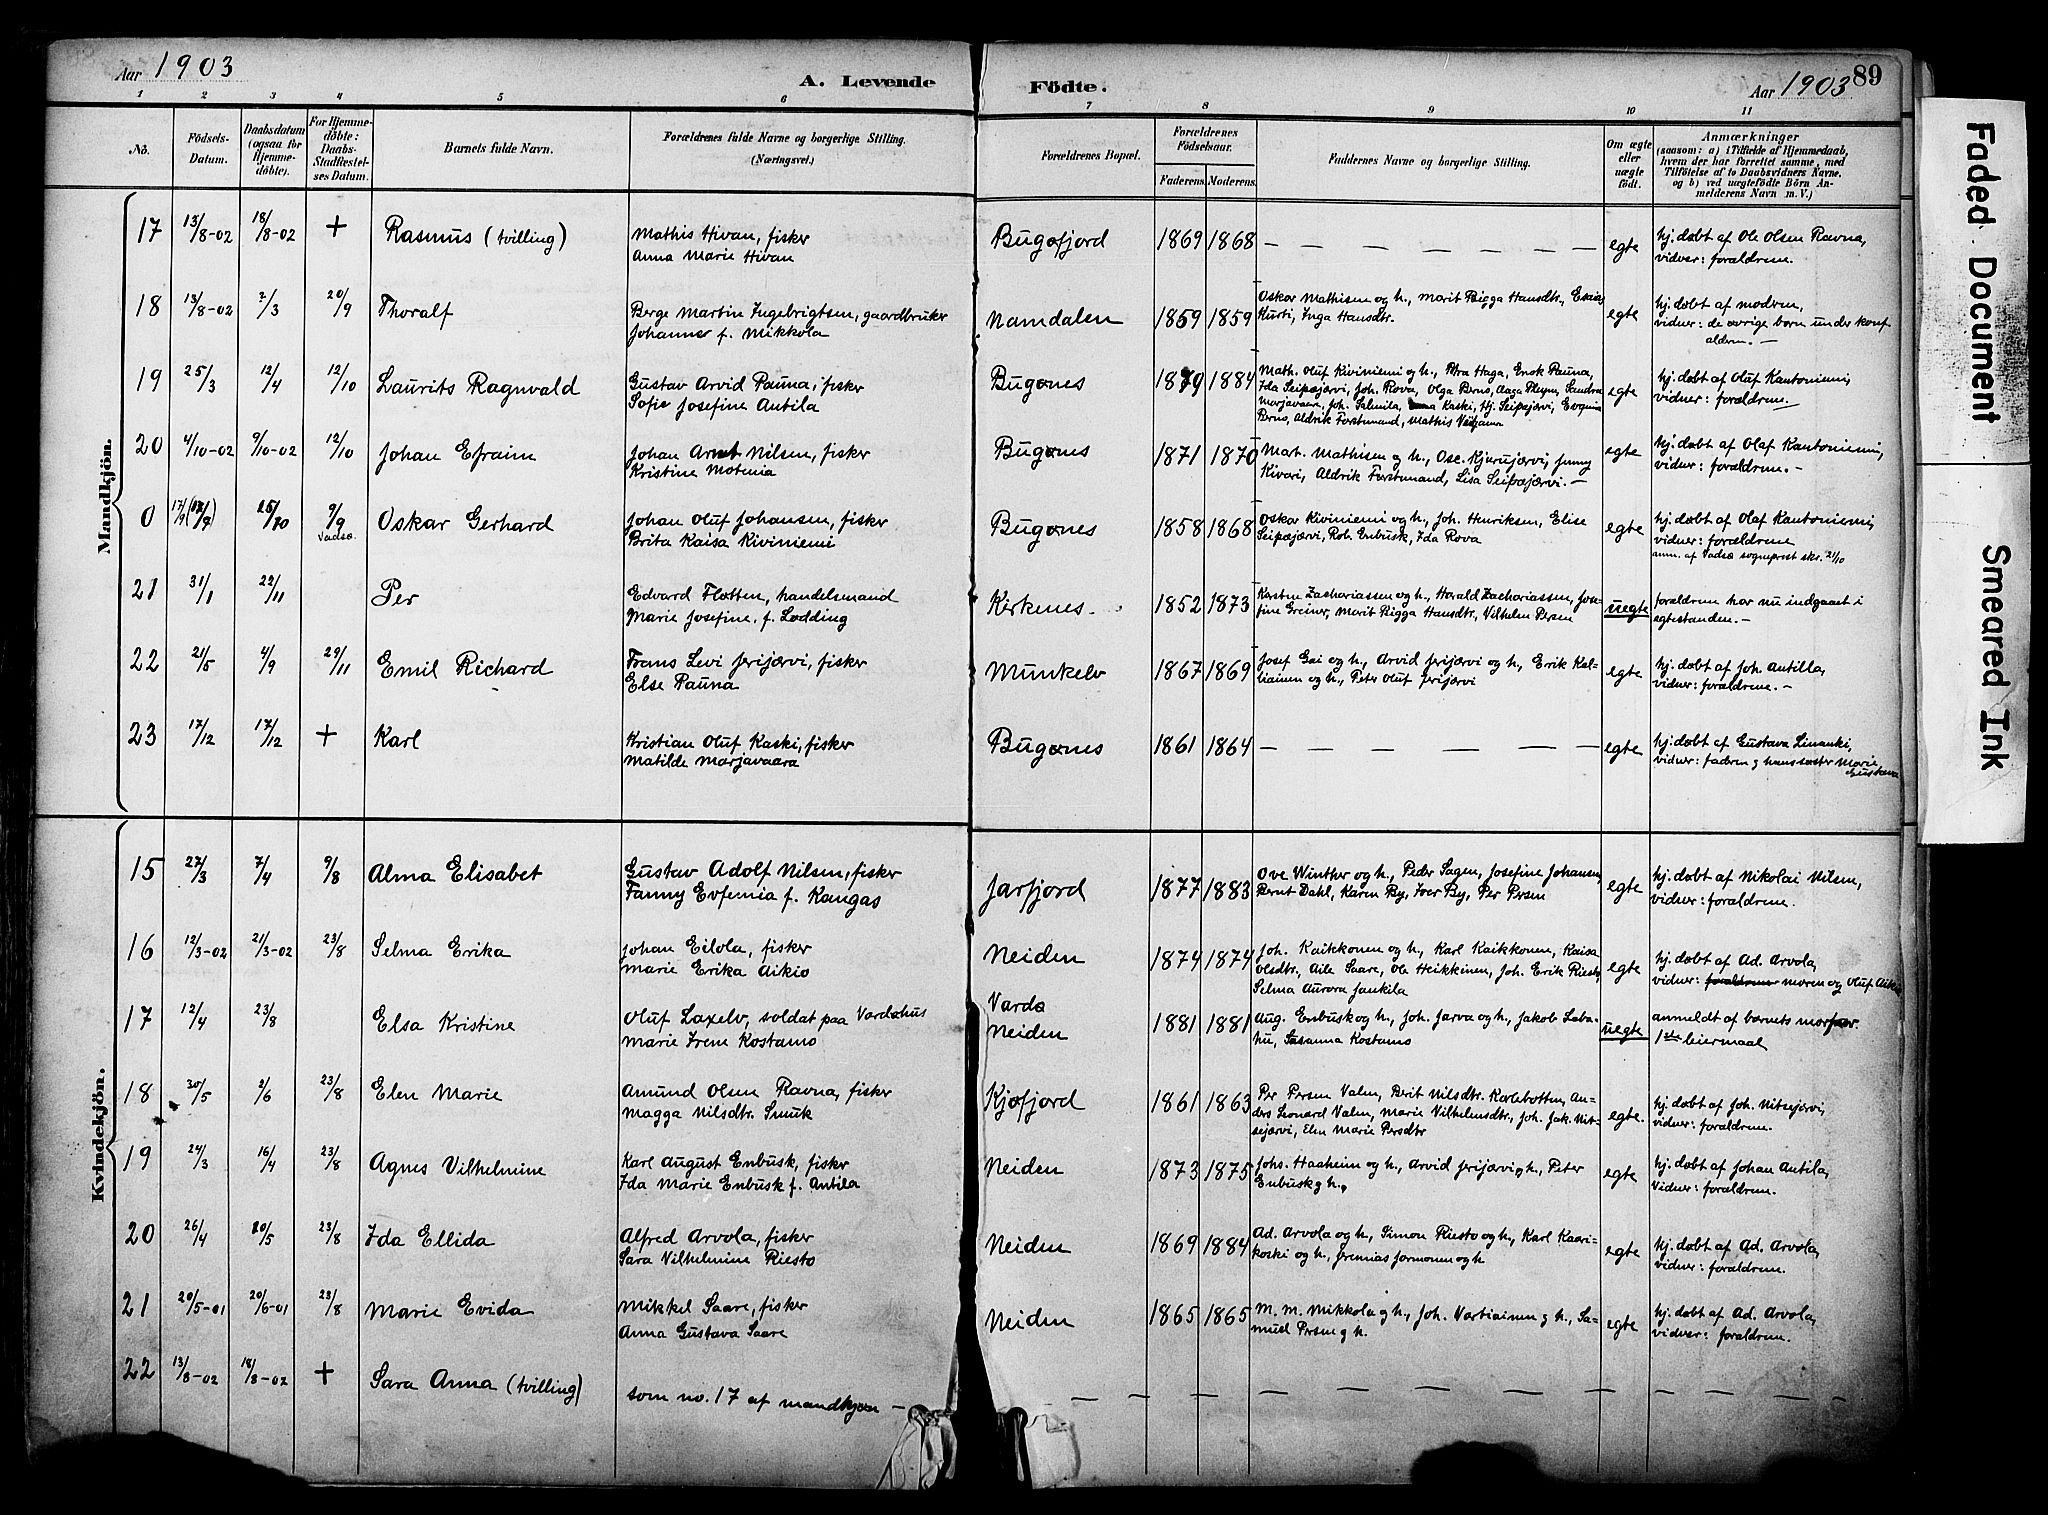 Aar 1903
A. Levende
Födte.
Aar 1903
89
1 2 3 4 5 6 7 8 9 10 11
No.
Födsels-
Datum.
Daabsdatum
(ogsaa for
Hjemme-
döbte).
For Hjemme-
döbte:
Daabs-
Stadfæstel-
ses Datum.
Barnets fulde Navn.
Forældrenes fulde Navne og borgerlige Stilling.
(Næringsvei.)
Forældrenes Bopæl.
Forældrenes
Födselsaar.
Faderens. Moderens.
Faddernes Navne og borgerlige Stilling.
Om ægte
eller
uægte
født.
Anmærkninger
(saasom: a) i Tilfælde af Hjemmedaab,
hvem der har forrettet samme, med
Tilföielse af to Daabsvidners Navne.
og b) ved uægtefödte Börn An-
melderens Navn m. V.)
Mandkjön.
17 13/8-02 18/8-02 + Rasmus (tvilling)
Mathis Hivan, fisker
Anna Marie Hivan
Bugøfjord 1869 1868 — — — — — — — egte
hj. døbt af Ole Olsen Ravna,
vidner: forældrene.
18 13/8-02 2/3 20/9 Thoralf
Berge Martin Ingebrigtsen, gaardbruker
Johanne f. Mikkola
Namdalen 1859 1859
Oskar Mathisen og h., Marit Bigga Hansdtr., Esaias
Kurti, Inga Hansdtr.
egte
hj. døbt af modren,
vidner: de øvrige børn under konf
alderen. —
19 25/3 12/4 12/10 Laurits Ragnvald
Gustav Arvid Pauna, fisker
Sofie Josefine Antila
Bugønes 1879 1884
Math. Oluf Kiviniemi og h., Petra Haga, Enok Pauna,
Ida Seipæjærvi, Joh. Rova, Olga Berno, Sandra
Marjavaara, Joh. Salmila, Kaski, Hj. Seipæjærvi, Evgenia
Berno, Aldrik Forstmand, Mathis
egte
hj. døbt af Oluf Kantoniemi,
vidner: forældrene.
20 4/10-02 9/10-02 12/10 Johan Efraim
Johan Arnt Nilsen, fisker
Kristine Motenia
Bugønes 1871 1870
Mart. Mathisen og h., Osc. Kjurujærvi, Jenny
Kivari, Aldrik Forstmand, Lisa Seipæjærvi. —
egte
hj. døbt af Olaf Kantoniemi,
vidner: forældrene. —
0 17/9 25/10 9/9 Vadsø. Oskar Gerhard
Johan Oluf Johansen, fisker
Brita Kaisa Kiviniemi
Bugønes 1858 1868
Oskar Kiviniemi og h., Joh. Henriksen, Elise
Seipæjærvi, Rob. Enbusk, Ida Rova
egte
hj. døbt af Olaf Kantoniemi,
vidner: forældrene
anm. af Vadsø sogneprest skr. 21/10
21 31/1 22/11 Per
Edvard Fløtten, handelsmand
Marie Josefine, f. Lødding
Kirkenes. 1852 1873
Kersten Zachariassen og h., Harald Zachariassen, Jose-
fine Greiner, Marit Bigga Hansdtr., Vilhelm Persen
uegte
forældrene har nu indgaaet i
egtestanden. —
22 21/5 4/9 29/11 Emil Richard
Frans Levi Jerijærvi, fisker
Else Pauna
Munkelv 1867 1869
Josef Gai og h., Arvid Jerijærvi og h., Erik Kal-
liainen og h., Peter Oluf Jerijærvi
egte
hj. døbt af Joh. Antilla,
vidner: forældrene. —
23 17/12 17/12 + Karl
Kristian Oluf Kaski, fisker
Matilde Marjavaara
Bugønes 1861 1864 — — — — — — egte
hj. døbt af Gustava Linanki,
vidner: fadren og hans søster Marie
Gustava
Kvindekjön.
15 27/3 7/4 9/8 Alma Elisabet
Gustav Adolf Nilsen, fisker
Fanny Evfemia f. Kangas
Jarfjord 1877 1883
Ove Winther og h., Peder Sagen, Josefine Johansen,
Bernt Dahl, Karen By, Iver By, Per Persen
egte
hj. døbt af Nikolai Nilsen,
vidner: forældrene.
16 12/3-02 21/3-02 23/8 Selma Erika
Johan Eilola, fisker
Marie Erika Aikio
Neiden 1874 1874
Joh. Kaikkonen og h., Karl Kaikkonen, Kaisa
Olsdtr., Aile Saare, Ole Heikkinen, Joh. Erik Riesto,
Selma Aurora Jankila
egte
hj. døbt af Ad. Arvola,
vidner: forældrene moren og Oluf Aikio
17 12/4 23/8 Elsa Kristine
Oluf Laxelv, soldat paa Vardøhus
Marie Irene Kostamo
Vardø
Neiden 1881 1881
Aug. Enbusk og h., Joh. Jarva og h., Jakob Laba-
hu, Susanna Kostamo
uegte
anmeldt af barnets morfaer.
1ste leiermaal
18 30/5 2/6 23/8 Elen Marie
Amund Olsen Ravna, fisker
Magga Nilsdtr. Smuk
Kjøfjord 1861 1863
Per Persen Valen, Berit Nilsdtr. Karlebotten, An-
ders Leonard Valen, Marie Vilhelmsdtr., Joh. Jak. Nit-
sejærvi, Elen Marie Persdtr
egte.
hj. døbt af Joh. Nitsejærvi,
vidner: forældrene.
19 24/3 16/4 23/8 Agnes Vilhelmine
Karl August Enbusk, fisker
Ida Marie Enbusk f. Antila
Neiden 1873 1875
Johs. Haaheim og h., Arvid Jerijærvi og h., Peter
Enbusk og h.
egte
hj. døbt af Johan Antila,
Vidner: forældrene.
20 26/4 20/5 23/8 Ida Ellida
Alfred Arvola, fisker
Sara Vilhelmine Riesto
Neiden 1869 1884
Ad. Arvola og h., Simon Riesto og h., Karl Kaari-
koski og h., Jeremias Jormonen og h
egte
hj. døbt af Ad. Arvola,
vidner: forældrene.
21 20/5-01 20/6-01 23/8 Marie Evida
Mikkel Saare, fisker
Anna Gustava Saare
Neiden 1865 1865
M. M. Mikkola og h., Joh. Vartiainen og h., Sa-
muel Persen og h.
egte
hj. døbt af Ad. Arvola,
vidner: forældrene.
22 13/8-02 18/8-02 + Sara Anna (tvilling)
som no. 17 af mandkjøn —
— — — — — — — — — —
Faded Document
Smeared Ink